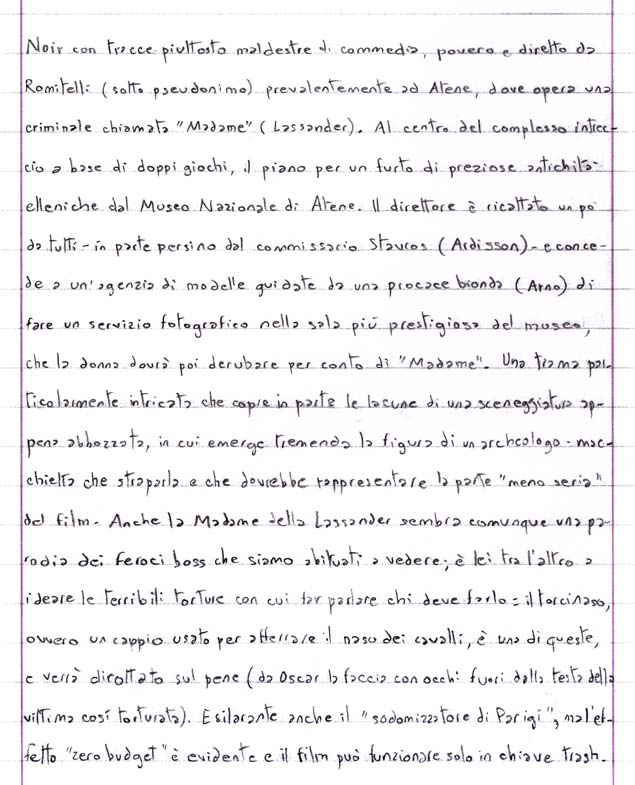 Noir con tracce piuttosto maldestre di commedia, povero e diretto da
Romitelli (sotto pseudonimo) prevalentemente ad Atene, dove opera una
criminale chiamata "Madame" (Lassander). Al centro del complesso intrec-
cio a base di doppi giochi, il piano per un furto di preziose antichità
elleniche dal Museo Nazionale di Atene. Il direttore è ricattato un po'
da tutti - in parte persino dal commissario Stavros (Ardisson) - e conce-
de a un'agenzia di modelle guidate da una procace bionda (Arno) di
fare un servizio fotografico nella sala più prestigiosa del museo,
che la donna dovrà poi derubare per conto di "Madame". Una trama par-
ticolarmente intricata che copre in parte le lacune di una sceneggiatura ap-
pena abbozzata, in cui emerge tremenda la figura di un archeologo-mac-
chietta che straparla e che dovrebbe rappresentare la parte "meno seria"
del film. Anche la Madame della Lassander sembra comunque una pa-
rodia dei feroci boss che siamo abituati a vedere; è lei tra l'altro a
ideare le terribili torture con cui far parlare chi deve farlo: il torcinaso,
ovvero un cappio usato per afferrare il naso dei cavalli, è una di queste,
e verrà dirottato sul pene (da Oscar la faccia con occhi fuori dalla testa della
vittima così torturata). Esilarante anche il "sodomizzatore di Parigi", ma l'ef-
fetto "zero budget" è evidente e il film può funzionare solo in chiave trash.